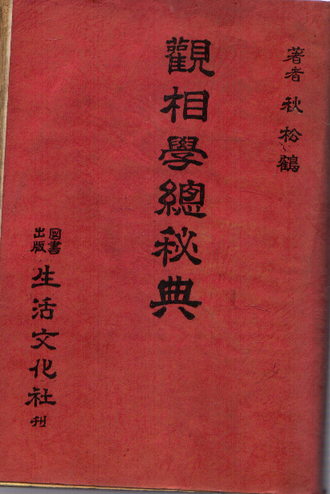 著者 秋松鶴
觀相學總秘典
圖書出版 生活文化社 刊